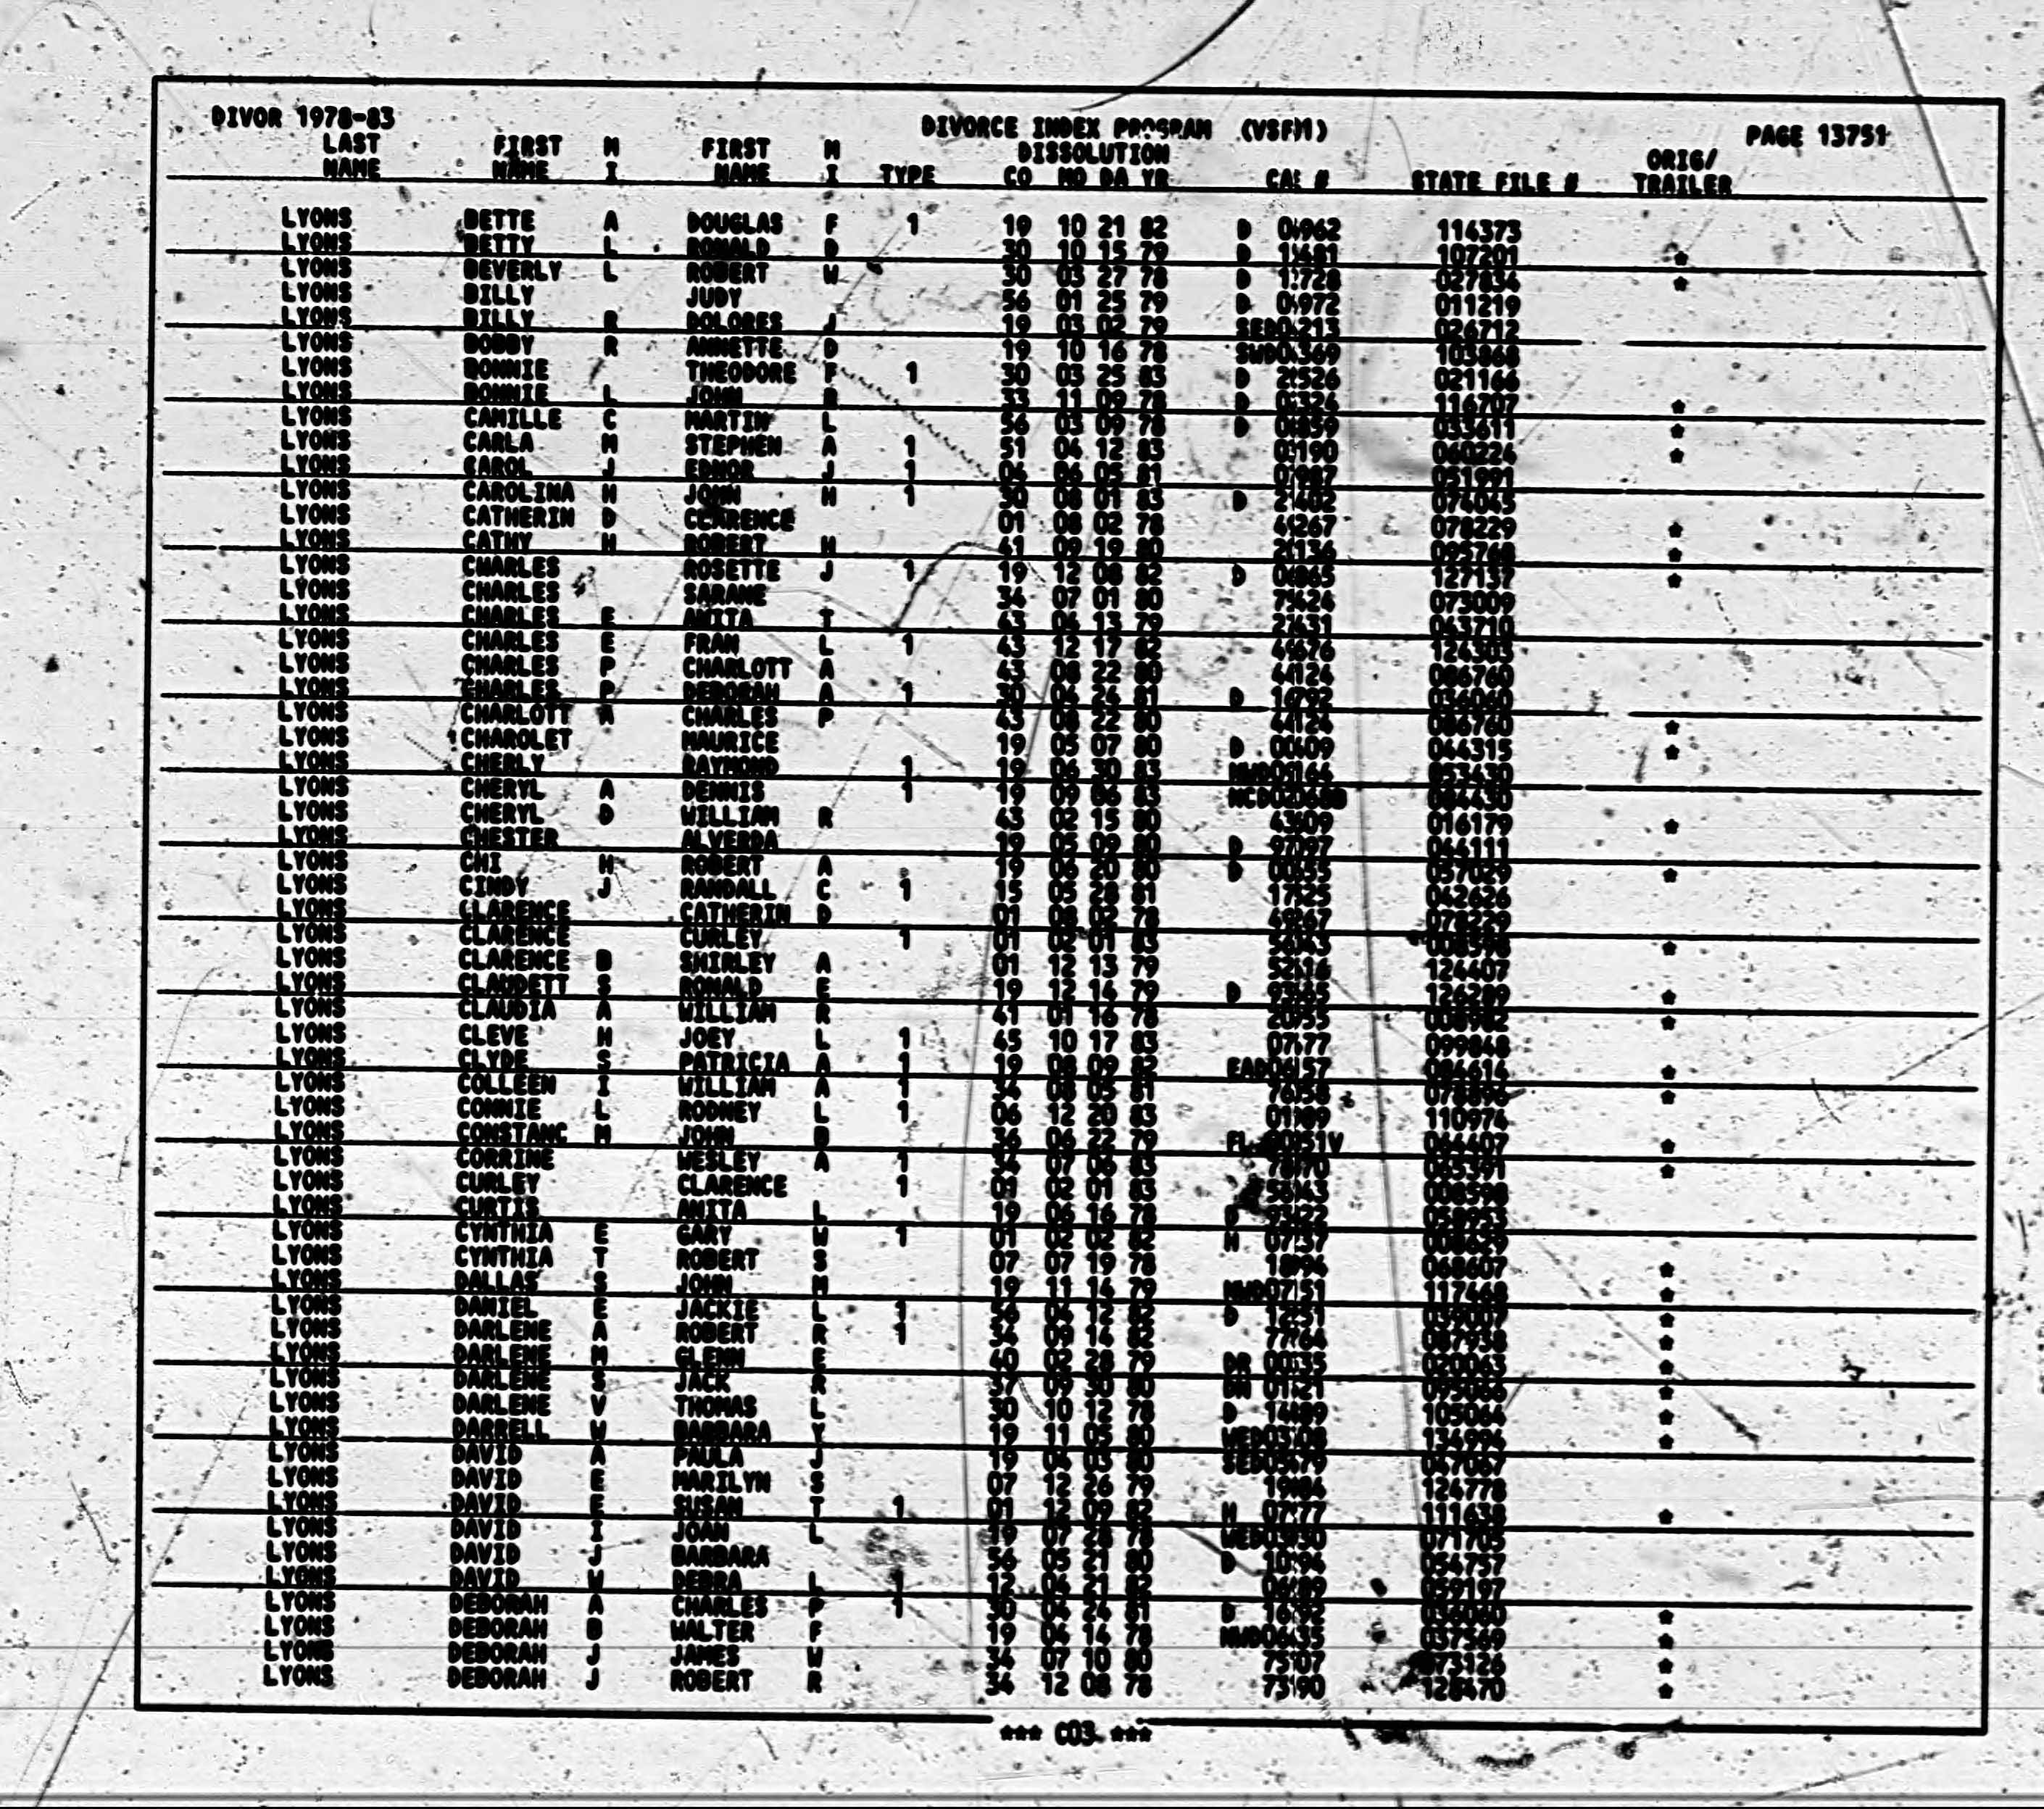 DIVOR 1978-83 DIVORCE INDEX PROGRAM (VSFM) PAGE 13751
LAST FIRST M FIRST M DISSOLUTION ORIG/
NAME NAME I NAME I TYPE CO MO DA YR CAL # STATE FILE # TRAILER
LYONS BETTE A DOUGLAS F 1 19 10 21 82 D 114373
LYONS BETTY L RONALD D 30 10 15 79 D 107201 *
LYONS BEVERLY L ROBERT W 30 03 27 78 D 027834 *
LYONS BILLY JUDY 56 01 25 79 D 011219
LYONS BILLY R DOLORES J 19 03 02 79 026712
LYONS BOBBY R ANNETTE D 19 10 16 78 103868
LYONS BONNIE THEODORE F 1 30 03 25 83 D 021166
LYONS BONNIE L JOHN R 33 11 09 78 D 116707 *
LYONS CAMILLE C MARTIN L 56 03 09 78 D 033611 *
LYONS CARLA M STEPHEN A 1 51 04 12 83 060224 *
LYONS CAROL J EDNOR J 1 06 06 05 81 051991
LYONS CAROLINA H JOHN H 1 30 08 01 83 D 074045
LYONS CATHERIN D CLARENCE 01 08 02 78 078229 *
LYONS CATHY H ROBERT H 41 09 19 80 095768 *
LYONS CHARLES ROSETTE J 1 19 12 08 82 D 127137 *
LYONS CHARLES SARANE 34 07 01 80 073009
LYONS CHARLES E ANITA T 43 04 13 79 043710
LYONS CHARLES E FRAN L 1 43 12 17 82 124303
LYONS CHARLES P CHARLOTT A 43 08 22 80 086760
LYONS CHARLES P DEBORAH A 1 30 04 24 81 D 036060
LYONS CHARLOTT A CHARLES P 43 08 22 80 086760 *
LYONS CHAROLET MAURICE 19 05 07 80 D 044315 *
LYONS CHERLY RAYMOND 1 19 06 30 83 053430
LYONS CHERYL A DENNIS 1 19 09 06 83 084430
LYONS CHERYL D WILLIAM R 43 02 15 80 016179 *
LYONS CHESTER ALVERDA 19 05 09 80 D 044111
LYONS CHI H ROBERT A 19 06 20 80 D 057029 *
LYONS CINDY J RANDALL C 1 15 05 28 81 042626
LYONS CLARENCE CATHERIN D 01 08 02 78 078229
LYONS CLARENCE CURLEY 1 01 02 01 83 008598 *
LYONS CLARENCE B SHIRLEY A 01 12 13 79 124407
LYONS CLAUDETT S RONALD E 19 12 14 79 D 126289 *
LYONS CLAUDIA A WILLIAM R 41 01 16 78 008982 *
LYONS CLEVE H JOEY L 1 45 10 17 83 099848
LYONS CLYDE S PATRICIA A 1 19 08 09 82 084614 *
LYONS COLLEEN I WILLIAM A 1 34 08 05 81 078896 *
LYONS CONNIE L RODNEY L 1 06 12 20 83 110974
LYONS CONSTANC M JOHN B 36 06 22 79 064407 *
LYONS CORRINE WESLEY A 1 34 07 06 83 065391 *
LYONS CURLEY CLARENCE 1 01 02 01 83 008598
LYONS CURTIS ANITA L 19 06 16 78 D 058953
LYONS CYNTHIA E GARY W 1 01 02 02 82 H 008629
LYONS CYNTHIA T ROBERT S 07 07 19 78 068607 *
LYONS DALLAS S JOHN M 19 11 14 79 117468 *
LYONS DANIEL E JACKIE L 1 56 04 12 82 D 039007 *
LYONS DARLENE A ROBERT R 1 34 09 14 82 087938 *
LYONS DARLENE M GLENN E 40 02 28 79 020063 *
LYONS DARLENE S JACK R 37 09 30 80 095086 *
LYONS DARLENE V THOMAS L 30 10 12 78 D 105064 *
LYONS DARRELL W BARBARA Y 19 11 05 80 134994 *
LYONS DAVID A PAULA J 19 04 03 80 047067
LYONS DAVID E MARILYN S 07 12 26 79 124778
LYONS DAVID E SUSAN T 1 01 12 09 82 H 111638 *
LYONS DAVID I JOAN L 19 07 28 78 071705
LYONS DAVID J BARBARA 56 05 21 80 D 054757
LYONS DAVID W DEBRA L 12 04 21 82 059197
LYONS DEBORAH A CHARLES P 1 30 04 24 81 D 036060 *
LYONS DEBORAH B WALTER F 19 04 14 78 037569 *
LYONS DEBORAH J JAMES W 34 07 10 80 073126 *
LYONS DEBORAH J ROBERT R 34 12 08 78 128470 *
*** C03 ***